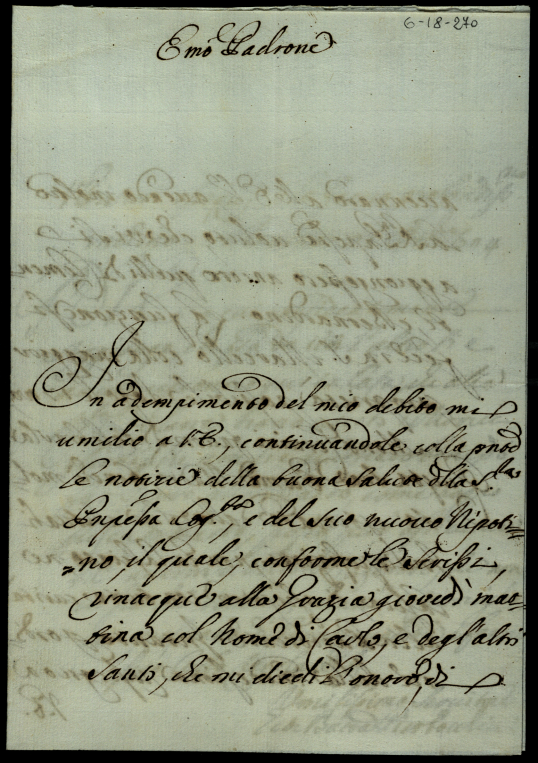 6-18-270
Emo Padrone
In adempimento del mio debito mi
umilio a V.E., continuandole colla pnte
le notizie della buona salute dlla S.ra
Pnpessa Cog.ta, e del suo nuovo Nipoti=
=no, il quale, conforme le scrissi,
rinacque alla Grazia giovedì mat=
tina col Nome di Carlo, e degl'altri
Santi, che mi diedi l'onore di
V.E.